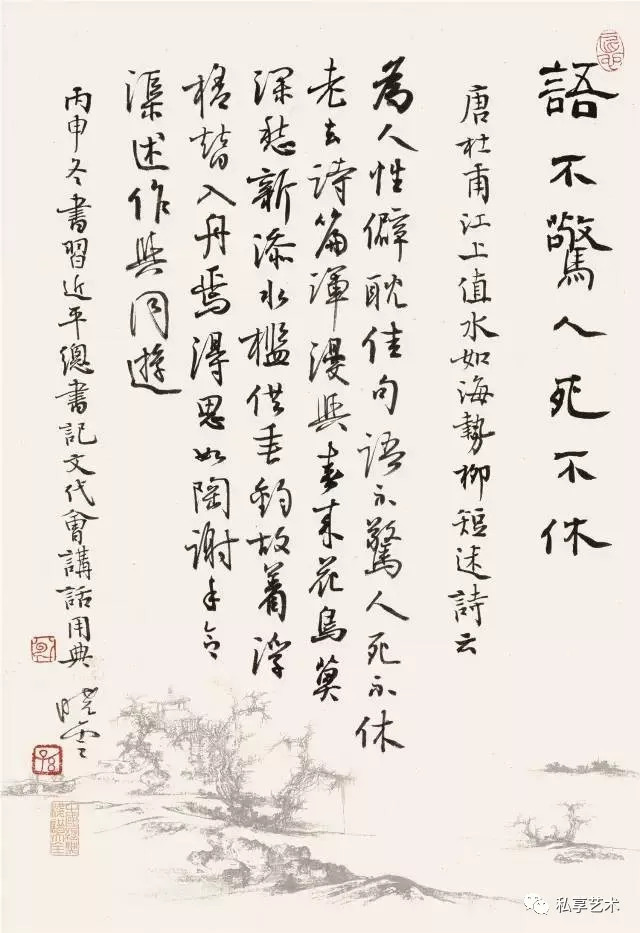 語不驚人死不休
唐杜甫江上值水如海勢聊短述詩云
為人性僻耽佳句語不驚人死不休
老去詩篇渾漫與春來花鳥莫
深愁新添水檻供垂釣故著浮
槎替入舟焉得思如陶謝手令
渠述作與同遊
丙申冬書習近平總書記文代會講話用典
曉雲
私享艺术